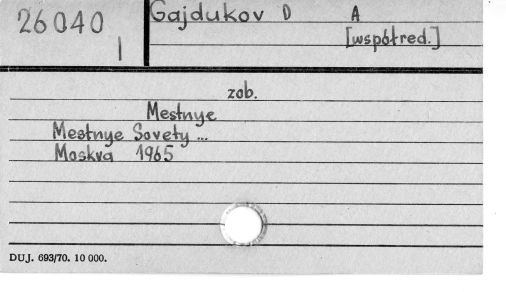 26040
I
Gajdukov D A
[współred.]
zob.
Mestnye
Mestnye Sovety ...
Moskva 1965
DUJ. 693/70. 10 000.